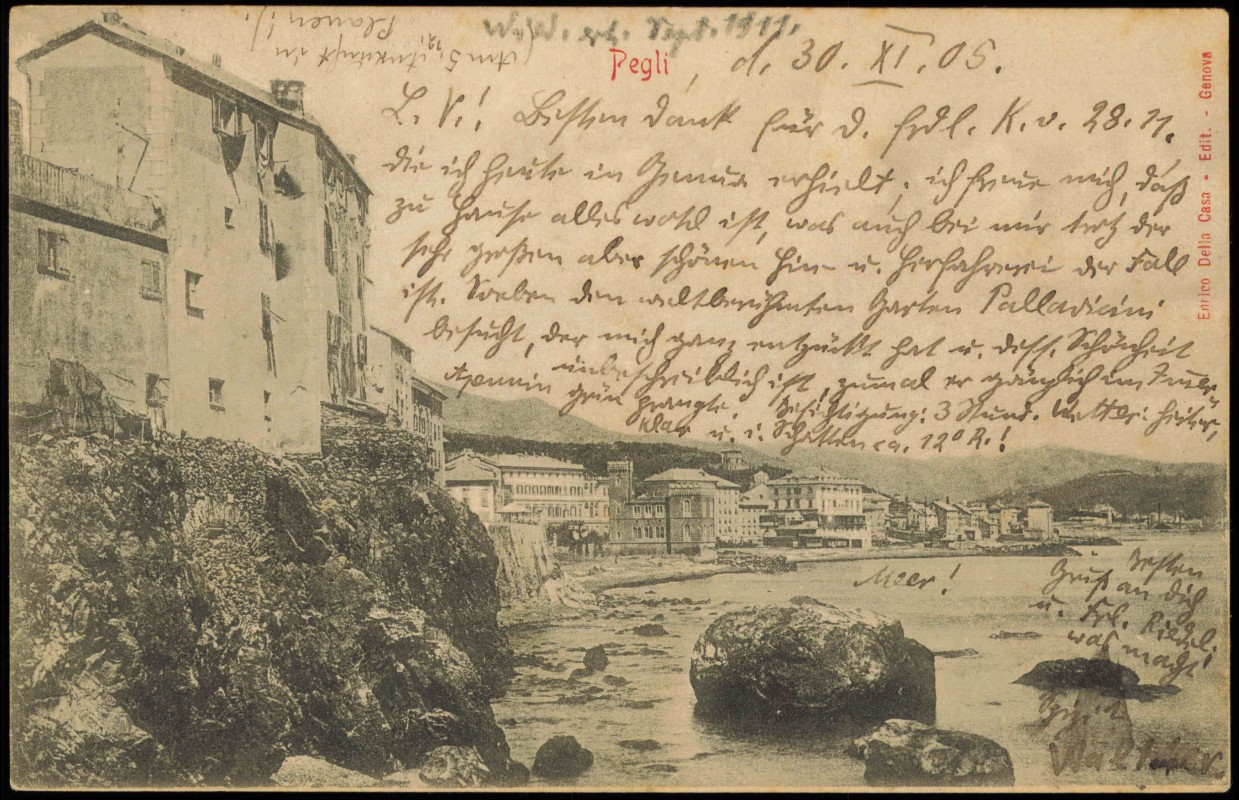 Sept. 1911.
Am 5. 12. Ankunft in
Plauen!).
Pegli, d. 30. XI. 05.
L. V.! Besten Dank für d. frdl. K. v. 28. 11.
die ich heute in Genua erhielt; ich freue mich, daß
zu Hause alles wohl ist, was auch bei mir trotz der
sehr großen aber schönen Hin- u. Herfahrerei der Fall
ist. Soeben den weltberühmten Garten Pallavicini
besucht, der mich ganz entzückt hat u. dess. Schönheit
unbeschreiblich ist, zumal er gänzlich im
grün prangte. Besichtigung: 3 Stund. Wetter: heiter,
klar u. i. Schatten ca. 12° R.!
Apennin
Meer!
Besten
Gruß an dich
u. Frl.
was macht
Walther
Enrico Della Casa • Edit. - Genova